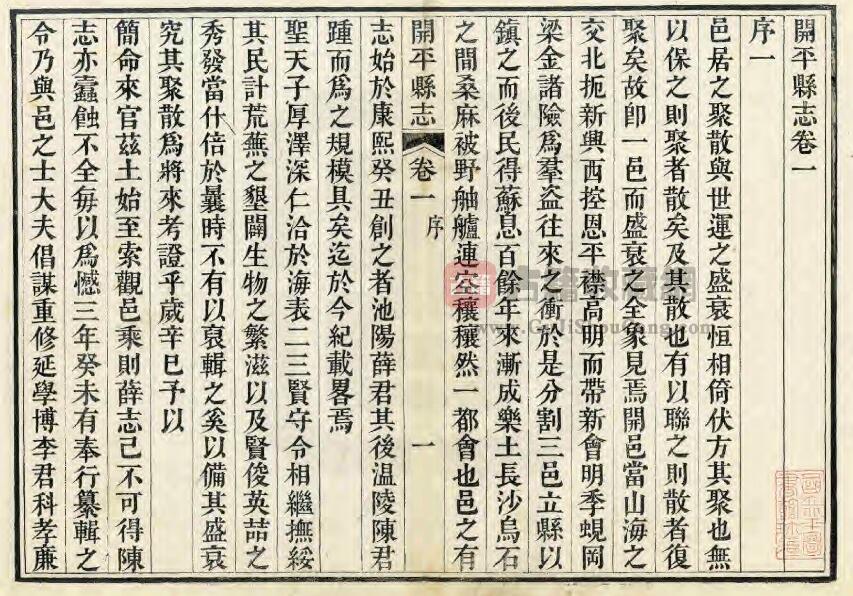 開平縣志卷一
序一
邑居之聚散與世運之盛衰恒相倚伏方其聚也無
以保之則聚者散矣及其散也有以聯之則散者復
聚矣故卽一邑而盛衰之全象見焉開邑當山海之
交北扼新興西控恩平襟高明而帶新會明季蜆岡
梁金諸險爲羣盜往來之衝於是分割三邑立縣以
鎮之而後民得蘇息百餘年來漸成樂土長沙烏石
之間桑麻被野舳艫連空穰穰然一都會也邑之有
開平縣志 卷一 序 一
志始於康熙癸丑創之者池陽薛君其後温陵陳君
踵而爲之規模具矣迄於今紀載畧焉
聖天子厚澤深仁洽於海表二三賢守令相繼撫綏
其民計荒蕪之墾闢生物之繁滋以及賢俊英喆之
秀發當什倍於曩時不有以裒輯之奚以備其盛衰
究其聚散爲將來考證乎歲辛巳予以
簡命來官茲土始至索觀邑乘則薛志已不可得陳
志亦蠹蝕不全每以爲憾三年癸未有奉行纂輯之
令乃與邑之士大夫倡謀重修延學博李君科孝廉
古籍收藏網
www.GuJiShouCang.com